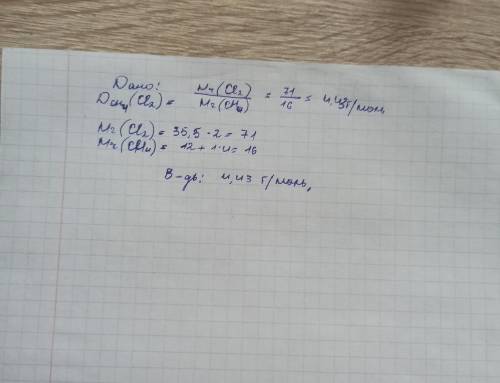 Дано:
D CH4 (Cl2) = Mr(Cl2) / Mr(CH4) = 71 / 16 = 4,43 г/моль
Mr(Cl2) = 35,5 · 2 = 71
Mr(CH4) = 12 + 1·4 = 16
В-дь: 4,43 г/моль.